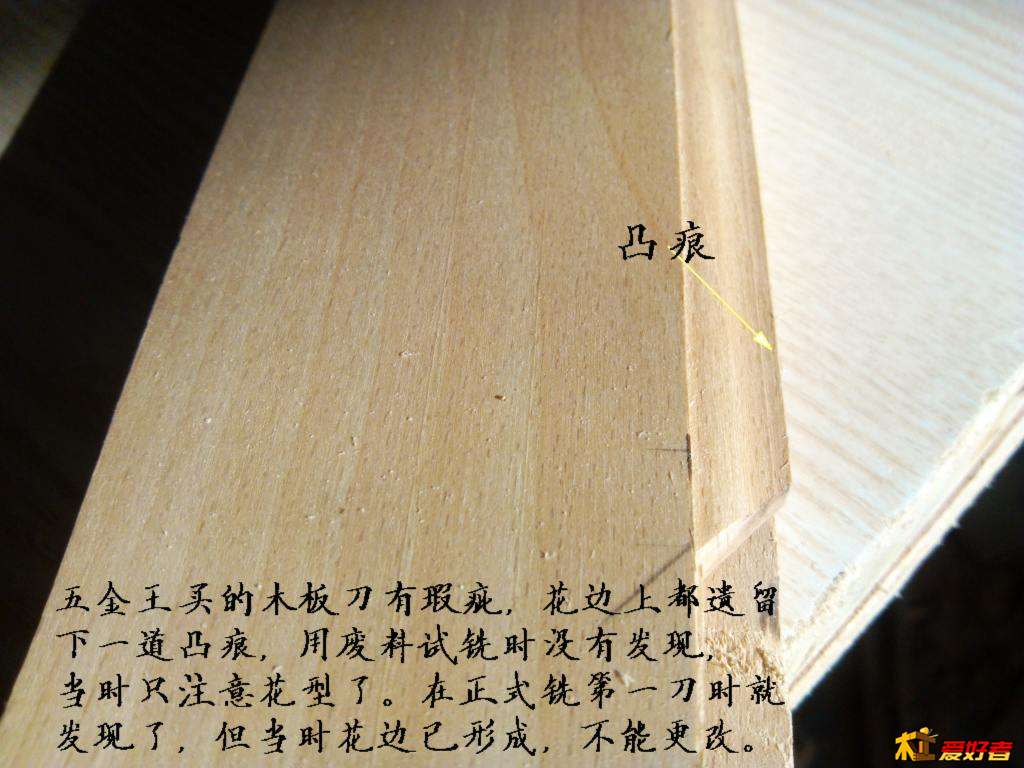 凸痕
五金王买的木板刀有瑕疵，花边上都遗留
下一道凸痕，用废料试铣时没有发现，
当时只注意花型了。在正式铣第一刀时就
发现了，但当时花边已形成，不能更改。
木工爱好者